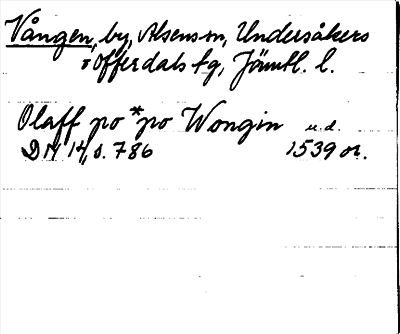 Vången, by, Alsens sn, Undersåkers
o Offerdals tg, Jämtl. l.
Olaff po *po Wongin u.d.
DN 14, s. 786 1539 or.